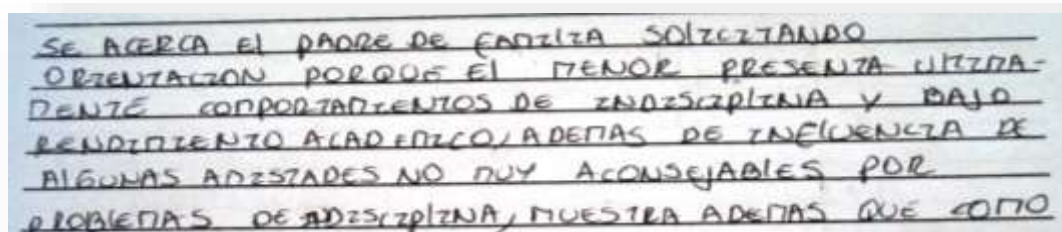 SE ACERCA El PADRE DE FAMIlIA SOlICITANDO
ORIENTACION PORQUE El MENOR PRESENTA UlTIMA-
MENTE COMPORTAMIENTOS DE INDISCIPlINA Y BAJO
RENDIMIENTO ACADEMICO, ADEMAS DE INFlUENCIA DE
AlGUNAS AMISTADES NO MUY ACONSEJABlES POR
PROBlEMAS DE INDISCIPlINA, MUESTRA ADEMAS QUE COMO